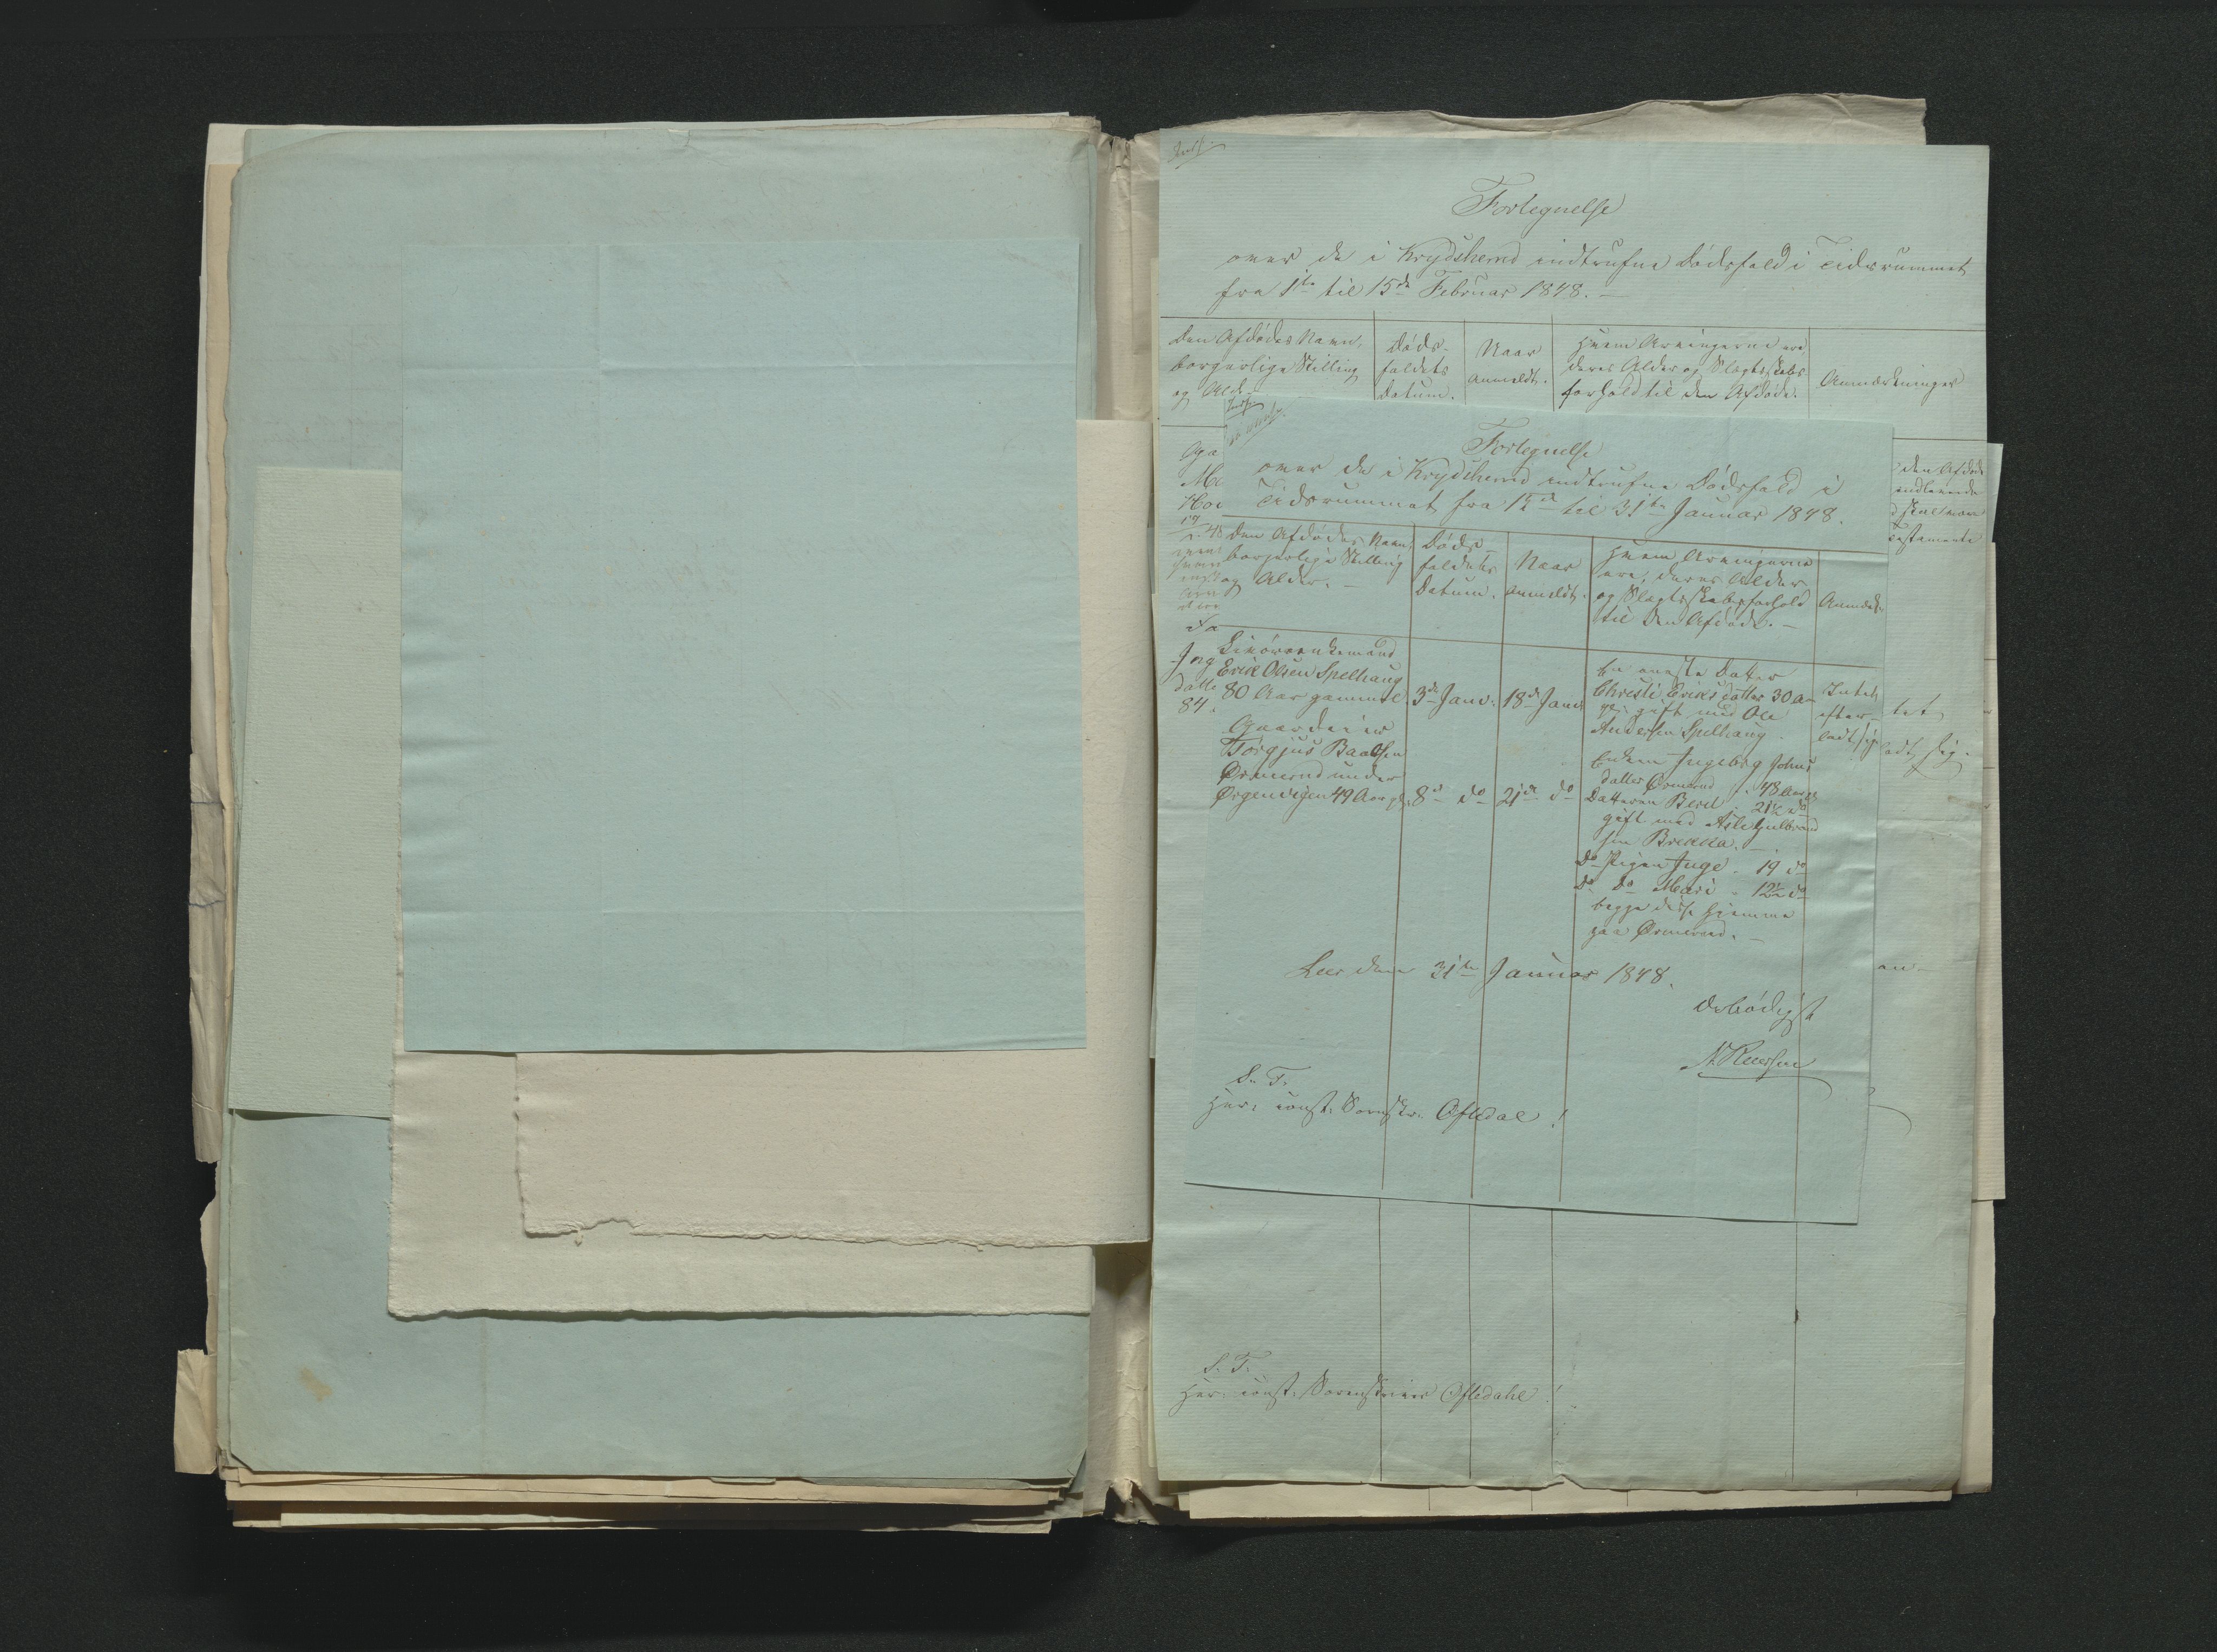 Indf.
Fortegnelse
over de i Krydsherred indtrufne Dødsfald i Tidsrummet
fra 1ste til 15de Februar 1848. —
Den Afdødes Navn,
borgerlige Stilling
og Alder
Døds-
faldets
Datum.
Naar
anmeldt.
Hvem Arvingerne ere,
deres Alder og Slægtskabs
forhold til den Afdøde.
Anmærkninger
Indf.
Fortegnelse
over de i Krydsherred indtrufne Dødsfald i
Tidsrummet fra 15de til 31te Januar 1848.
Den Afdødes Navn,
borgerlige Stilling
og Alder. —
Døds-
faldets
Datum.
Naar
anmeldt.
Hvem Arvingerne
ere, deres Alder
og Slægtskabsforhold
til den Afdøde. —
Anmærk.
Livørenkemand
Erik Olsen Spelhaug
80 Aar gammel.
3de Janv.
18de Janv.
En eneste Datter
Christi Eriksdatter 30 Aar
gl. gift med Ole
Andersen Spelhaug.
Intet
efter-
ladt sig
Gaardeier
Torgjus Baalsen
Ørmerud under
Ørgenvigen 49 Aar gl.
8de do
21de do
Enken Ingebrg Johns
datter Ørmerud 48 Aar gl
Datteren Berel 21½ do
gift med Asle Gulbrand
sen Brekka. —
Do Pigen Inge 19 do
Do Do Mari 12½ do
begge disse hjemme
paa Ørmerud. —
Leer den 31te Januar 1848.
Ærbødigst
S. T.
Herr const. Sorenskr. Oftedal!
Aga
Me
Hov
Ing
datte
84.
den Afdøde
tet
ladt sig.
S. T.
Herr const. Sorenskriver Oftedahl!